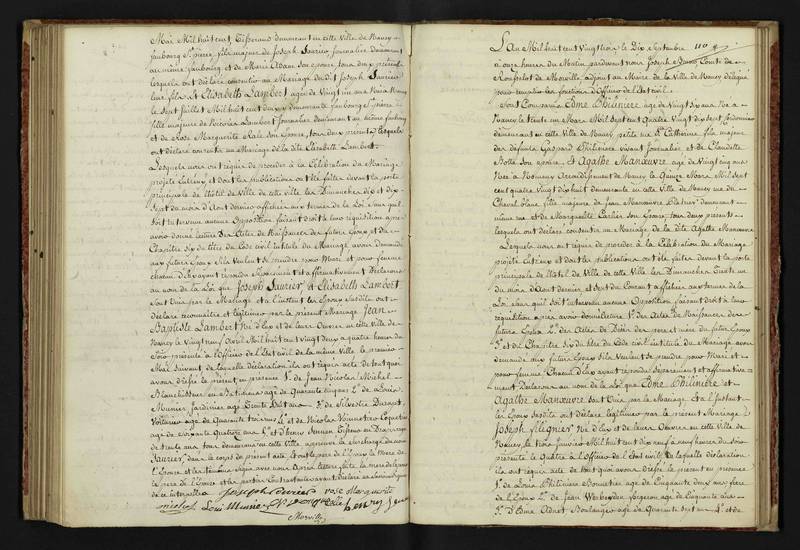 Mai Mil huit cent Tisserand demeurant en cette Ville de Nancy
faubourg St pierre, fils majeur de Joseph Saurier, Journalier demeurant
au même faubourg et de Marie Adam son épouse, tous deux présents
lesquels ont déclaré consentir au Mariage du dit Joseph Saurier
leur fils, et Elisabeth Lambert agée de Vingt un ans Née à Nancy
le Sept Juillet Mil huit cent deux, demeurante faubourg St pierre
fille majeure de Nicolas Lambert Journalier demeurant au même faubourg
et de Rose Marguerite son Epouse, tous deux présents lesquels
ont déclaré consentir au Mariage de la dite Elisabeth Lambert.
Lesquels nous ont requis de procéder à la Célébration du Mariage
projeté entr'eux et dont les publications ont été faites devant la porte
principale de l'hôtel de Ville de cette ville les Dimanches dix et dix
Sept du mois d'Aout dernier affichées aux termes de la Loi, Sans qu'il
Soit intervenu aucune Opposition, faisant droit à leur réquisition après
avoir donné lecture des Actes de Naissance des futurs Epoux et du
Chapitre Six du titre du Code civil intitulé du Mariage, avons demandé
aux futurs Epoux s'ils veulent se prendre pour Mari et pour femme
chacun d'eux ayant répondu Séparément et affirmativement déclarons
au nom de la Loi que Joseph Saurier et Elisabeth Lambert
Sont Unis par le Mariage, et à l'instant les Epoux Susdits ont
déclaré reconnaître et légitimer par le présent Mariage Jean
Baptiste Lambert Né d'eux et de leurs Oeuvres en cette ville de
Nancy le vingt neuf Avril Mil huit cent vingt deux à quatre heures du
Soir présenté à l'Officier de l'Etat civil de la même Ville le premier
Mai Suivant de laquelle déclaration ils ont requis acte de tout quoi
avons dressé le présent en présence 1° de Jean Nicolas Michel
agé de Quarante cinq ans 2° de Louis
Munier Jardinier agé de Trente huit ans 3° de Silvestre
Voiturier agé de Quarante trois ans 4° et de Nicolas
agé de Soixante Quatorze ans
de trente ans tous demeurants en cette Ville
Saurier, dans le corps du présent acte, et ont le père de l'époux la Mère de
l'Epouse et les témoins signé avec nous Après lecture
le père de l'Epouse et les parties Contractantes ayant déclaré ne Savoir signer
de ce interpellés Joseph Saurier rose Marguerite
Louis Munier
Morville
L'An Mil huit cent vingt trois le Dix Septembre 110
à onze heures du Matin pardevant nous Joseph Comte de
Rosselot de Morville adjoint au Maire de la Ville de Nancy délégué
pour remplir les fonctions d'Officier de l'Etat civil.
Sont Comparus Edme Thilinière agé de Vingt Six ans Né à
Nancy le trente un Mars Mil Sept cent Quatre Vingt dix Sept Cordonnier
demeurant en cette Ville de Nancy petite rue Ste Catherine fils majeur
des défunts Gaspard Thilinière vivant Journalier et de Claudette
Botte Son épouse, et Agathe Manoeuvre agée de Vingt cinq ans
Née à Nomeny Arrondissement de Nancy le Quinze Mars Mil Sept
cent quatre Vingt dix huit demeurante en cette Ville de Nancy rue du
Cheval blanc fille majeure de Jean Manoeuvre Platrier demeurant
même rue et de Marguerite Carlier Son Epouse tous deux présents
lesquels ont déclaré consentir au Mariage de la dite Agathe Manoeuvre
Lesquels nous ont requis de procéder à la Célébration du Mariage
projeté entr'eux et dont les publications ont été faites devant la porte
principale de l'hôtel de Ville de cette Ville les Dimanches trente un
du mois d'Aout dernier et Sept du Courant affichées aux termes de
la Loi Sans qu'il Soit intervenu aucune Opposition faisant droit à leur
réquisition après avoir donné lecture 1° des Actes de Naissance des
futurs Epoux 2° des Actes de Décès des père et mère du futur Epoux
3° et du Chapitre Six du titre du Code civil intitulé du Mariage avons
demandé aux futurs Epoux s'ils veulent se prendre pour Mari et
pour femme Chacun d'eux ayant répondu Séparément et affirmative
ment Déclarons au nom de la Loi que Edme Thilinière et
Agathe Manoeuvre Sont Unis par le Mariage, et à l'instant
les Epoux Susdits ont déclaré légitimer par le présent Mariage
Joseph Né d'eux et de leurs Oeuvres en cette Ville de
Nancy le trois Janvier Mil huit cent dix neuf à neuf heures du Soir
présenté le Quatre à l'Officier de l'Etat civil de laquelle déclaration
ils ont requis acte de tout quoi avons dressé le présent en présence
1° de Louis Thilinière agé de Cinquante deux ans frère
de l'Epoux 2° de Jean forgeron agé de Cinquante ans
3° d'Edme Adnot Boulanger agé de Quarante Sept ans 4° et de